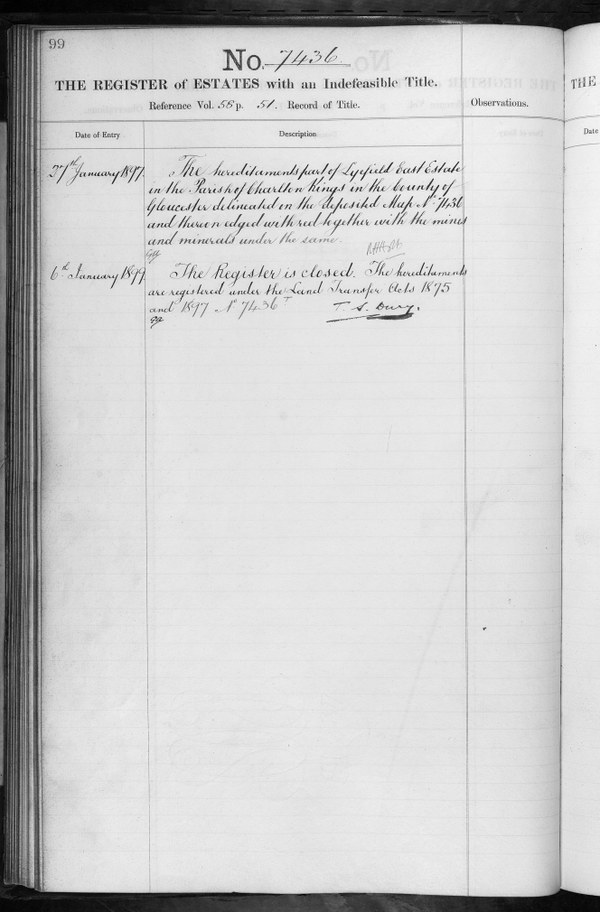 99
No. 7436
THE REGISTER of ESTATES with an Indefeasible Title.
Reference Vol. 58 p. 51. Record of Title.
Observations.
Date of Entry
Description
27th January 1897.
The hereditaments part of Lyefield East Estate
in the Parish of Charlton Kings in the County of
Gloucester delineated on the deposited Map No 7436
and thereon edged with red together with the mines
and minerals under the same.
6th January 1899
The Register is closed. The hereditaments
are registered under the Land Transfer Acts 1875
and 1897 No 7436 T
THE
Date